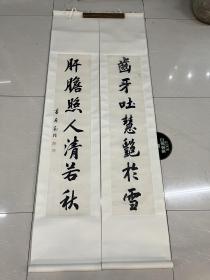 齒牙吐慧艷於雪
肝膽照人清若秋